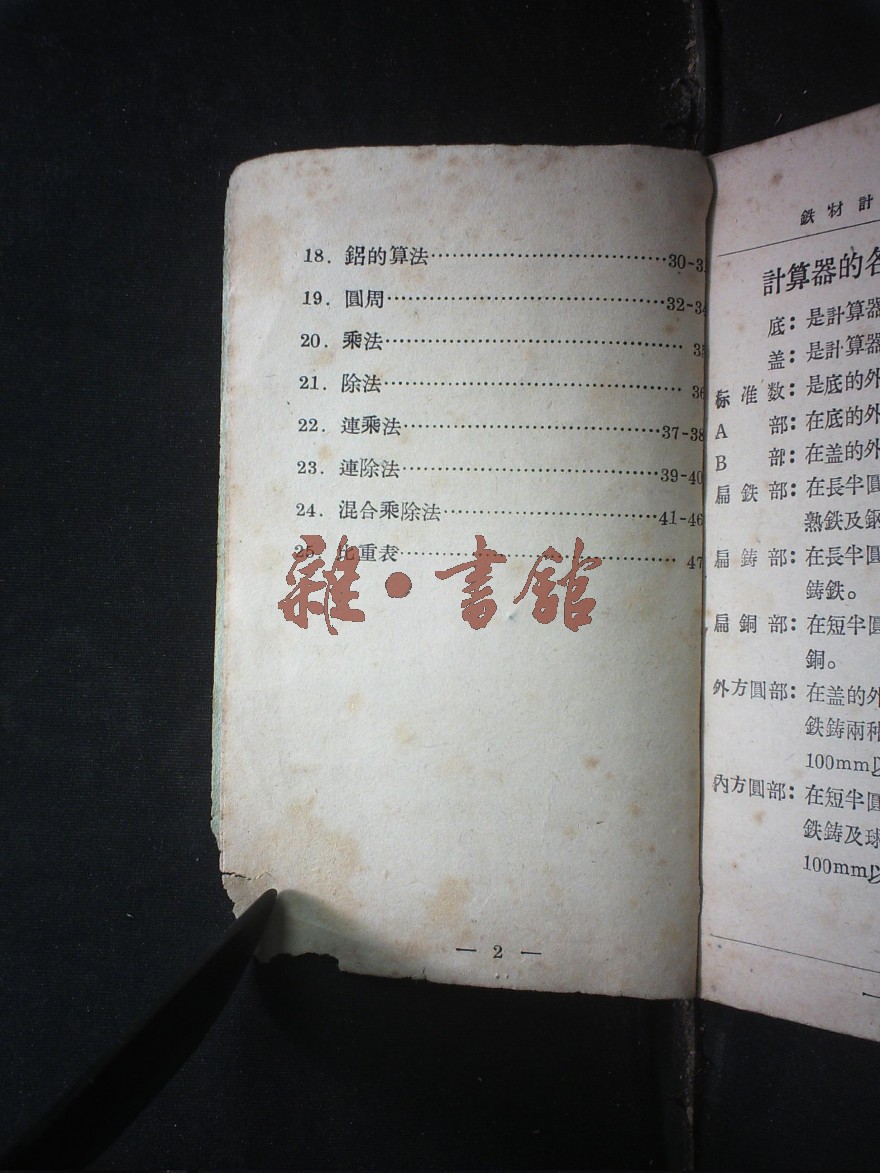 18. 鋁的算法⋯⋯⋯⋯⋯⋯⋯⋯⋯⋯⋯30-3
19. 圓周⋯⋯⋯⋯⋯⋯⋯⋯⋯⋯⋯32-34
20. 乘法⋯⋯⋯⋯⋯⋯⋯⋯⋯⋯⋯ 35
21. 除法⋯⋯⋯⋯⋯⋯⋯⋯⋯⋯⋯ 36
22. 連乘法⋯⋯⋯⋯⋯⋯⋯⋯⋯⋯⋯37-38
23. 連除法⋯⋯⋯⋯⋯⋯⋯⋯⋯⋯⋯39-40
24. 混合乘除法⋯⋯⋯⋯⋯⋯⋯⋯⋯41-46
25. 比重表⋯⋯⋯⋯⋯⋯⋯⋯⋯⋯⋯ 47
雜·書館
— 2 —
鉄材計
計算器的各
底：是計算器
盖：是計算器
标准数：是底的外
A 部：在底的外
B 部：在盖的外
扁鉄部：在長半圓
熟鉄及鋼
扁鋳部：在長半圓
鋳鉄。
扁銅部：在短半圓
銅。
外方圓部：在盖的外
鉄鋳兩种
100mm以
內方圓部：在短半圓
鉄鋳及球
100mm以